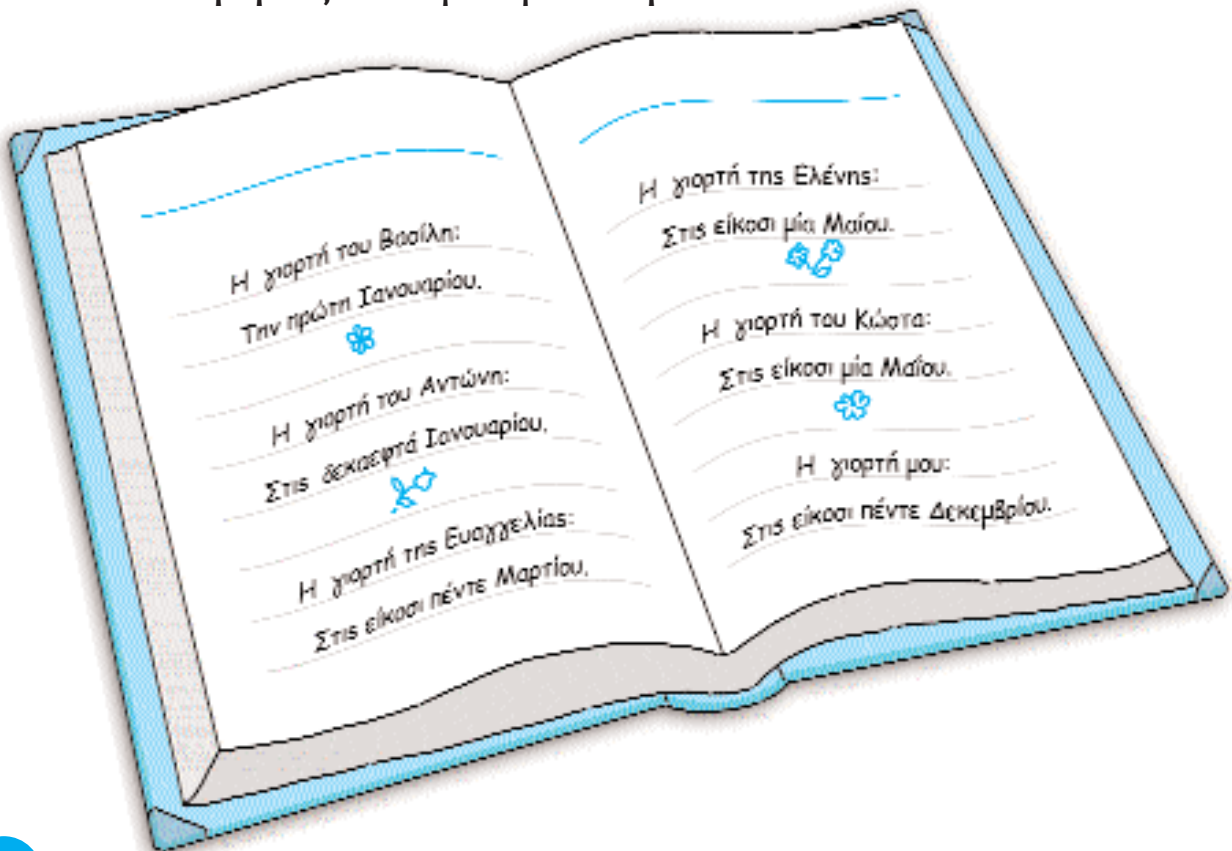 Η γιορτή του Βασίλη:
Την πρώτη Ιανουαρίου.
Η γιορτή του Αντώνη:
Στις δεκαεφτά Ιανουαρίου.
Η γιορτή της Ευαγγελίας:
Στις είκοσι πέντε Μαρτίου.
Η γιορτή της Ελένης:
Στις είκοσι μία Μαίου.
Η γιορτή του Κώστα:
Στις είκοσι μία Μαΐου.
Η γιορτή μου:
Στις είκοσι πέντε Δεκεμβρίου.